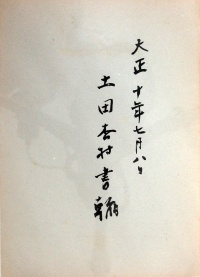 大正十年七月八日
土田杏村書翰